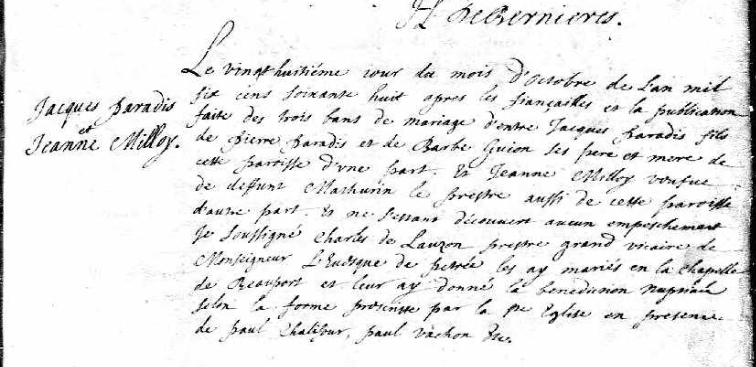 H. DeBernieres.
Le vingt huitiéme iour du mois d'octobre de L'an mil
Jacques Paradis
et
Jeanne Milloy.
six cens soixante huit apres les fiançailles et la publication
faite des trois bans de mariage d'entre Jacques Paradis fils
de Pierre Paradis et de Barbe Guion ses pere et mere de
cette paroisse d'vne part. Et Jeanne Milloy veufue
de deffunt Mathurin le prestre aussi de cette paroisse
d'autre part. Et ne s'estant découvert aucun empeschement
Je soussigné Charles de Lauzon prestre grand vicaire de
Monseigneur L'Euesque de petrée les ay mariés en la chapelle
de Beauport et leur ay donné la benediction nuptiale
selon la forme prescritte par la Ste Eglise en presence
de paul Chalifour, paul vachon &c.